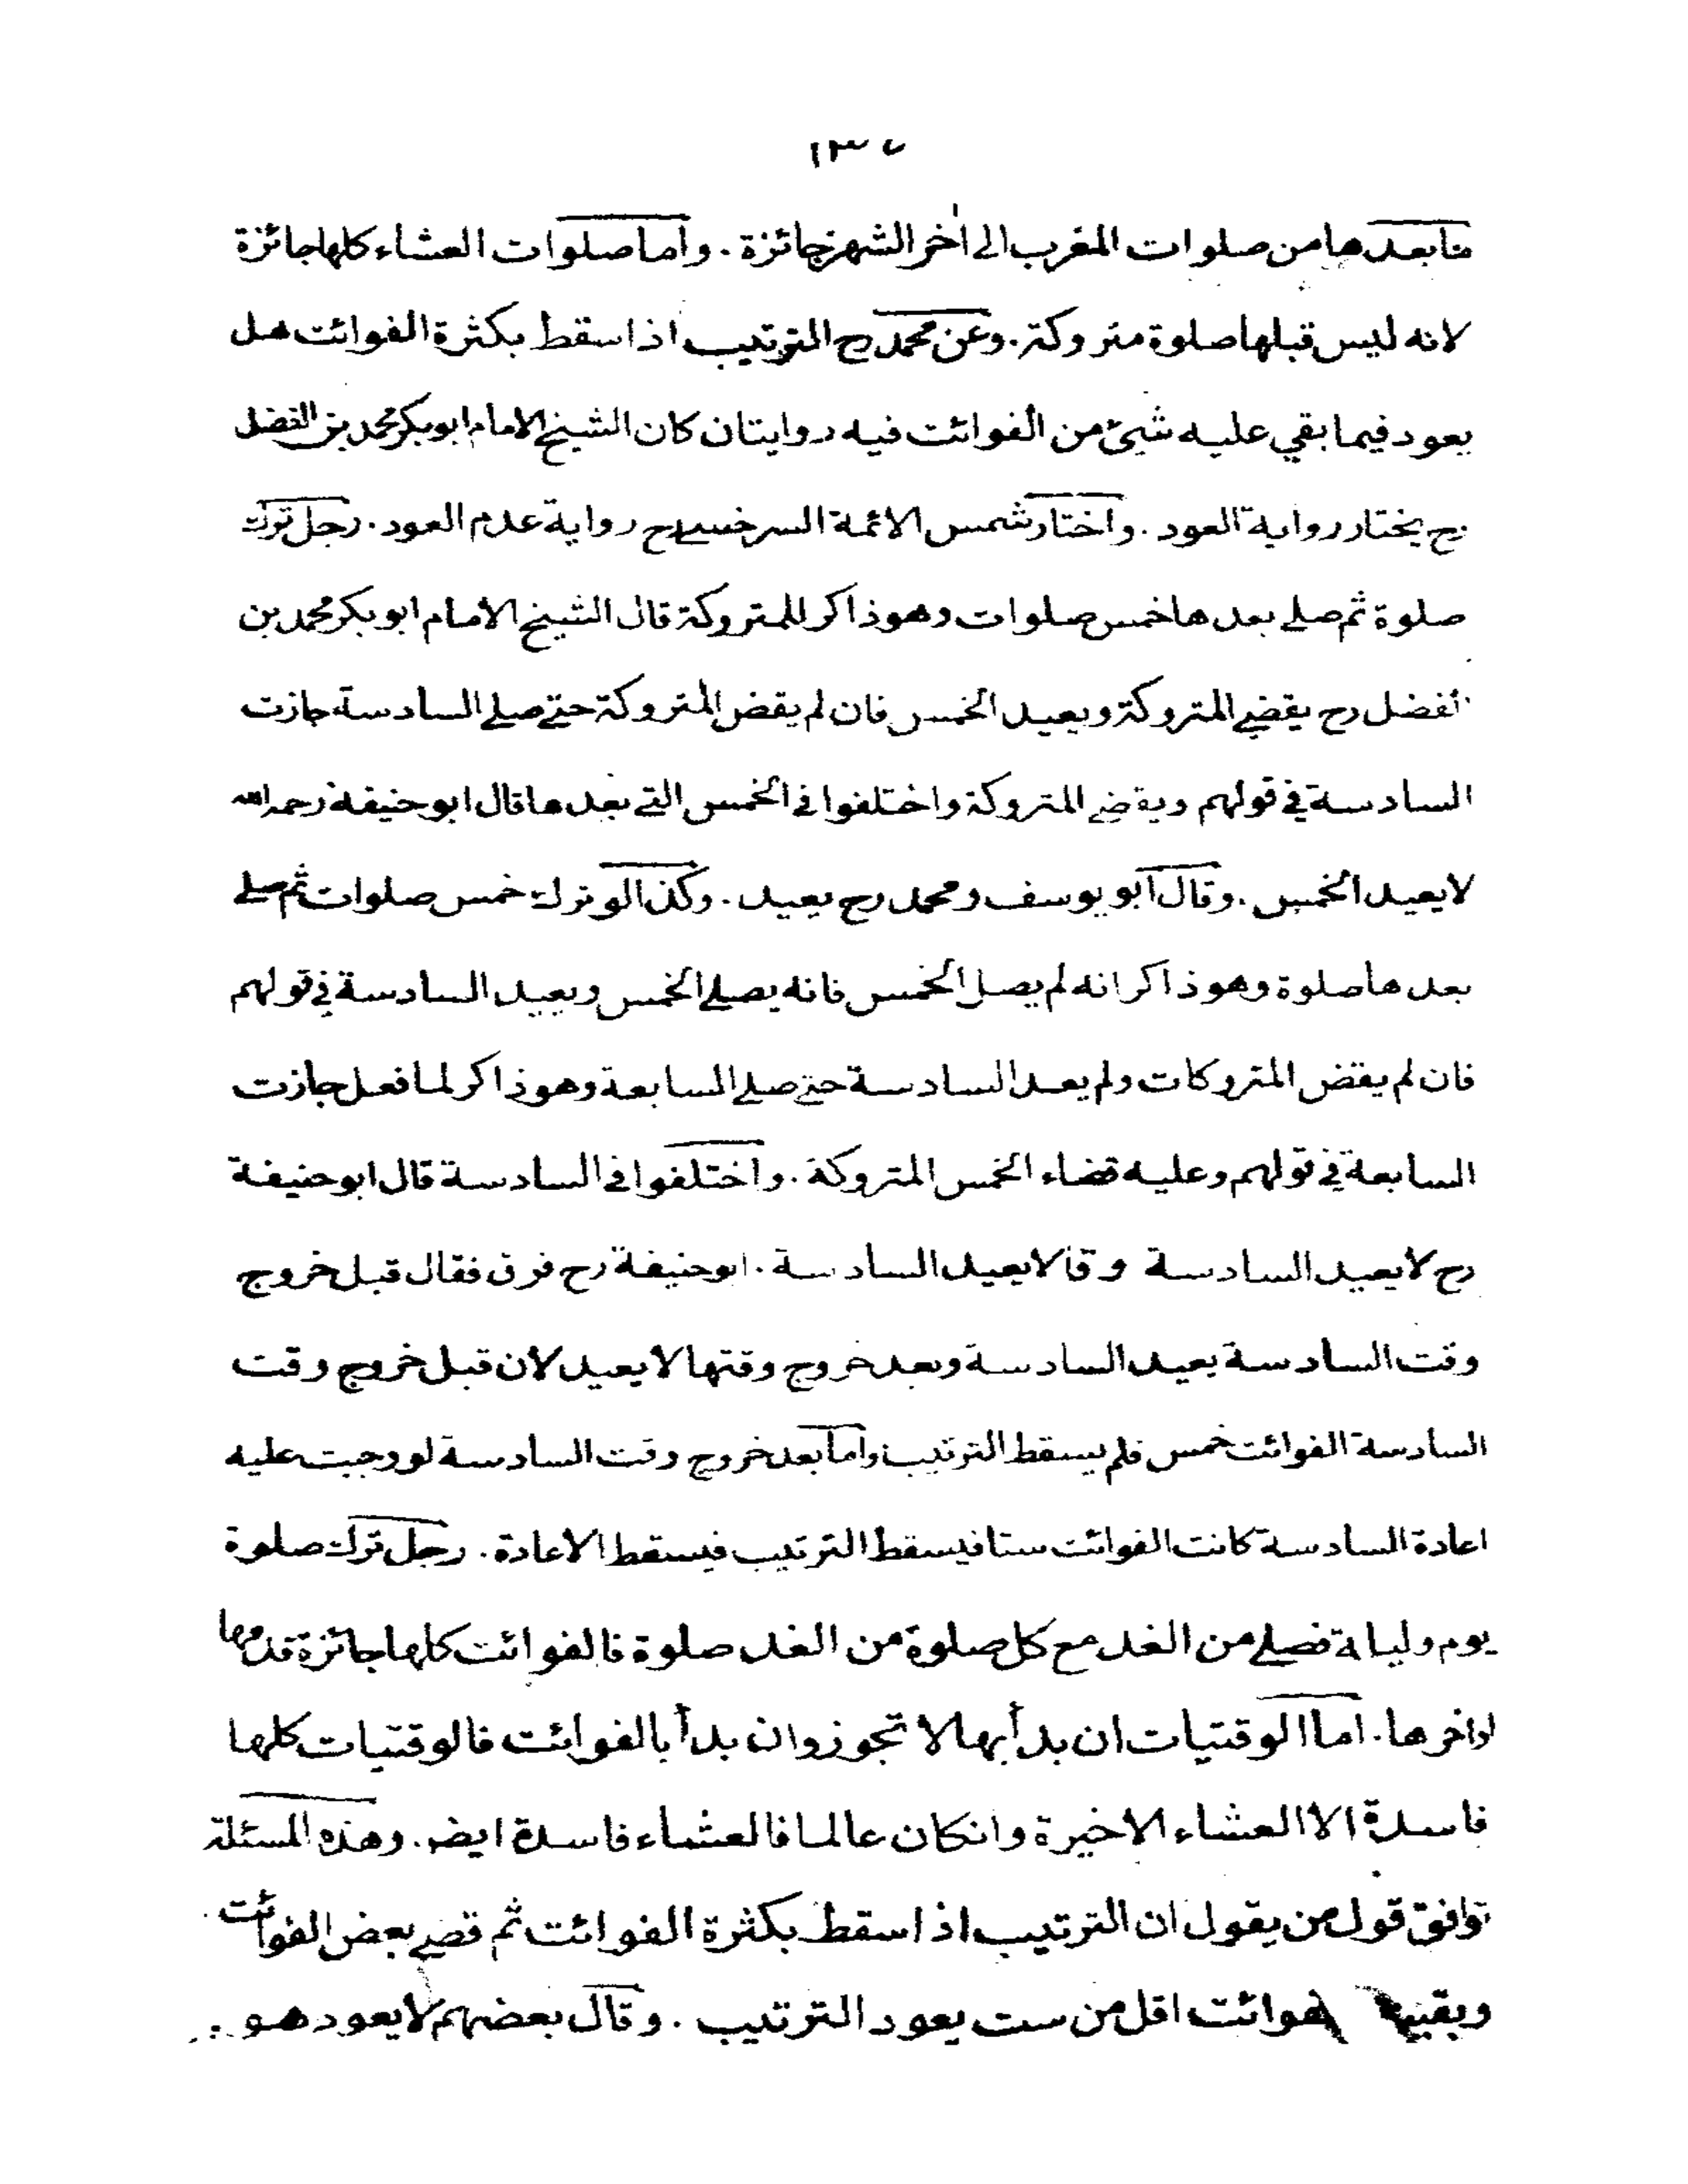 ١٣٧
مابعدها من صلوات المغرب الى اخر الشهر جائزة . واما صلوات العشاء كلها جائزة
لانه ليس قبلها صلوة متروكة . وعن محمد رح الترتيب اذا سقط بكثرة الفوائت هل
يعود فيما بقي عليه شئ من الفوائت فيه روايتان كان الشيخ الامام ابو بكر محمد بن الفضل
رح يختار رواية العود . واختار شمس الائمة السرخسي رح رواية عدم العود . رجل ترك
صلوة ثم صلى بعدها خمس صلوات وهو ذاكر للمتروكة قال الشيخ الامام ابو بكر محمد بن
الفضل رح يقضي المتروكة ويعيد الخمس فان لم يقض المتروكة حتى صلى السادسة جازت
السادسة في قولهم ويقضي المتروكة واختلفوا في الخمس التي بعدها قال ابو حنيفة رحمه الله
لا يعيد الخمس . وقال ابو يوسف ومحمد رح يعيد . وكذا لو ترك خمس صلوات ثم صلى
بعدها صلوة وهو ذاكر انه لم يصل الخمس فانه يصلي الخمس ويعيد السادسة في قولهم
فان لم يقض المتروكات ولم يعد السادسة حتى صلى السابعة وهو ذاكر لما فعل جازت
السابعة في قولهم وعليه قضاء الخمس المتروكة . واختلفوا في السادسة قال ابو حنيفة
رح لا يعيد السادسة وقالا يعيد السادسة . ابو حنيفة رح فرق فقال قبل خروج
وقت السادسة يعيد السادسة وبعد خروج وقتها لا يعيد لان قبل خروج وقت
السادسة الفوائت خمس فلم يسقط الترتيب واما بعد خروج وقت السادسة لو وجبت عليه
اعادة السادسة كانت الفوائت ستا فيسقط الترتيب فيسقط الاعادة . رجل ترك صلوة
يوم وليلة فصلى من الغد مع كل صلوة من الغد صلوة فالفوائت كلها جائزة قدمها
او اخرها . اما الوقتيات ان بدأ بها لا تجوز وان بدأ بالفوائت فالوقتيات كلها
فاسدة الا العشاء الاخيرة وانكان عالما فالعشاء فاسدة ايضـ . وهذه المسئلة
توافق قول من يقول ان الترتيب اذا سقط بكثرة الفوائت ثم قضى بعض الفوائت
وبقيت الفوائت اقل من ست يعود الترتيب . وقال بعضهم لا يعود هو